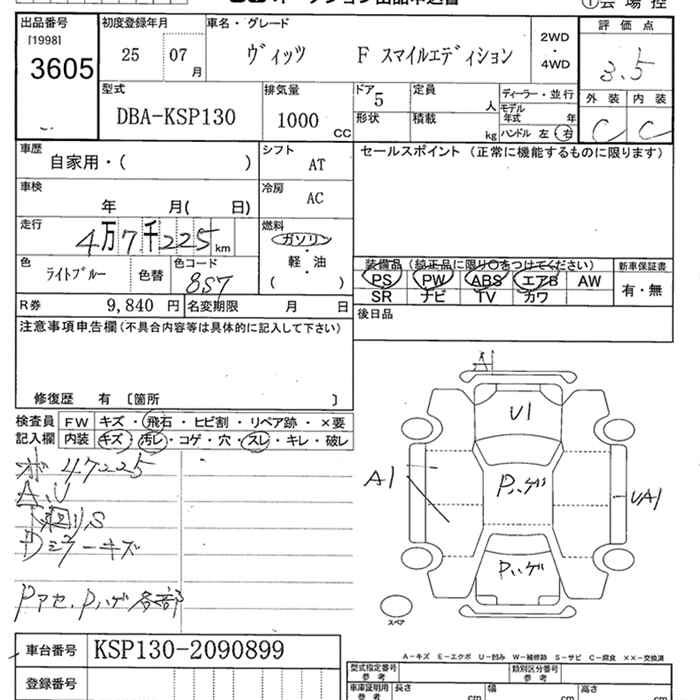 ①会場控
出品番号 [1998] 3605
初度登録年月 25 07月
車名・グレード ヴィッツ F スマイルエディション
2WD・4WD
評価点 3.5
外装 C 内装 C
型式 DBA-KSP130
排気量 1000 CC
ドア 5
形状
定員 人
積載 kg
ディーラー・並行
モデル年式 年
ハンドル 左 右
車歴 自家用・( )
シフト AT
セールスポイント (正常に機能するものに限ります)
車検 年 月( 日)
冷房 AC
走行 4万7千225km
燃料 ガソリン・軽・油 ( )
色 ライトブルー 色替
色コード 8S7
装備品 (純正品に限り○をつけてください) 新車保証書
PS PW ABS エアB AW 有・無
SR ナビ TV カワ
R券 9,840 円 名変期限 月 日
後日品
注意事項申告欄(不具合内容等は具体的に記入して下さい)
修復歴 有 〔箇所 〕
検査員記入欄
FW キズ・飛石・ヒビ割・リペア跡・×要
内装 キズ・汚レ・コゲ・穴・スレ・キレ・破レ
47225
A,U
S
キズ
各部
A1
U1
Pハゲ
A1
UA1
Pハゲ
スペア
車台番号 KSP130-2090899
登録番号
A-キズ E-エクボ U-凹み W-補修跡 S-サビ C-腐食 ××-交換済
型式指定番号 参考 類別区分番号 参考
車庫証明用 参考 長さ cm 幅 cm 高さ cm